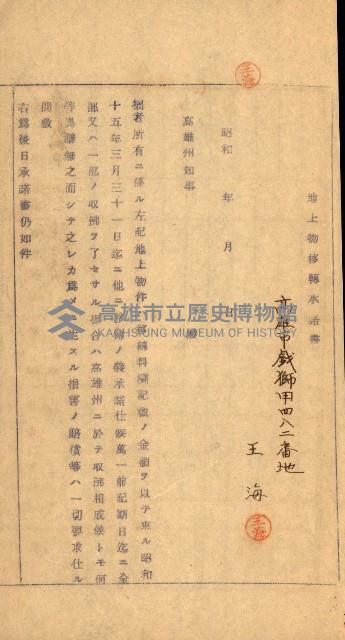 地上物移轉承諾書
高雄市戲獅甲四八二番地
王海
王海
王海
昭和 年 月 日
高雄州知事 殿
拙者所有ニ係ル左記地上物件 移轉料欄記載ノ金額ヲ以テ來ル昭和
十五年三月三十一日迄ニ他ニ移轉ノ義承諾仕候萬一前記期日迄ニ全
部又ハ一部ノ取拂ヲ了セサル場合ハ高雄州ニ於テ取拂相成候トモ何
等異議無之而シテ之レカ爲メ生スル損害ノ賠償等ハ一切要求仕ル
間敷
右爲後日承諾書仍如件
高雄市立歷史博物館
KAOHSIUNG MUSEUM OF HISTORY